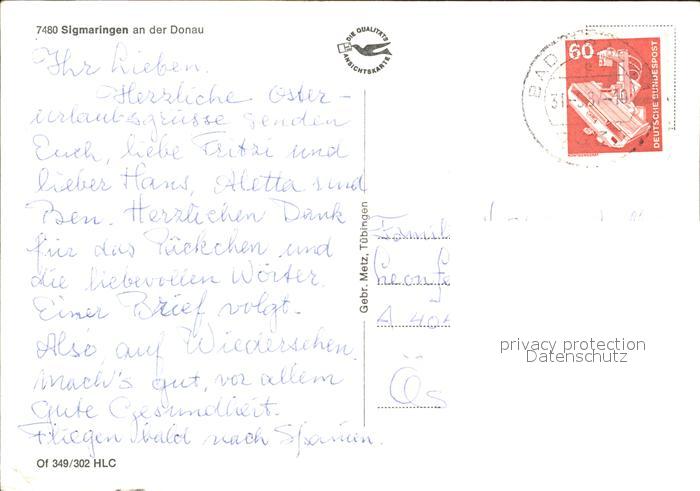 7480 Sigmaringen an der Donau
DIE QUALITÄTS
ANSICHTSKARTE
Ihr Lieben.
Herzliche Oster-
urlaubsgrüsse senden
Euch, liebe Fritzi und
lieber Hans, Aletta und
Ben. Herzlichen Dank
für das Päckchen und
die liebevollen Wörter.
Einer Brief volgt.
Also, auf Wiedersehen.
Mach's gut, vor allem
Gute Gesundheit.
Fliegen bald nach Spanien.
Of 349/302 HLC
Gebr. Metz, Tübingen
BAD
60
DEUTSCHE BUNDESPOST
Famil
A 404
Ös
privacy protection
Datenschutz